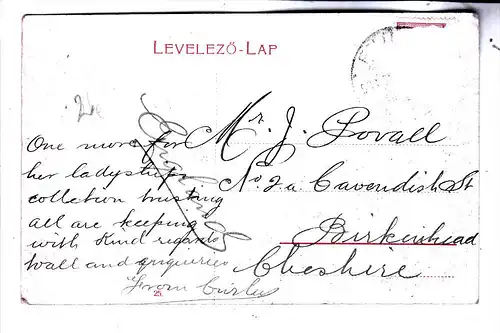 LEVELEZŐ-LAP
One more for
her ladyship
collection trusting
all are keeping
with Kind regards
to all and enquiries
From Curly
England
Mr. J. Povall
No 2a Cavendish St
Birkenhead
Cheshire
25.